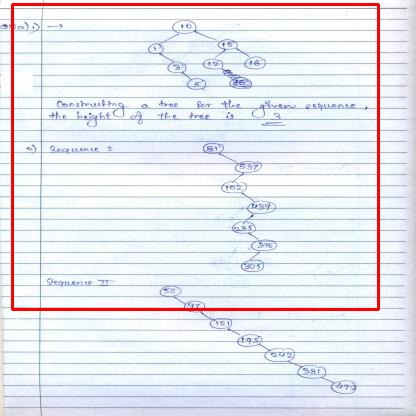 10
1 15
3 12 16
5
Constructing a tree for the given sequence,
the height of the tree is 3
c) Sequence I
81
537
102
439
285
376
305
Sequence II
52
97
121
195
242
381
472